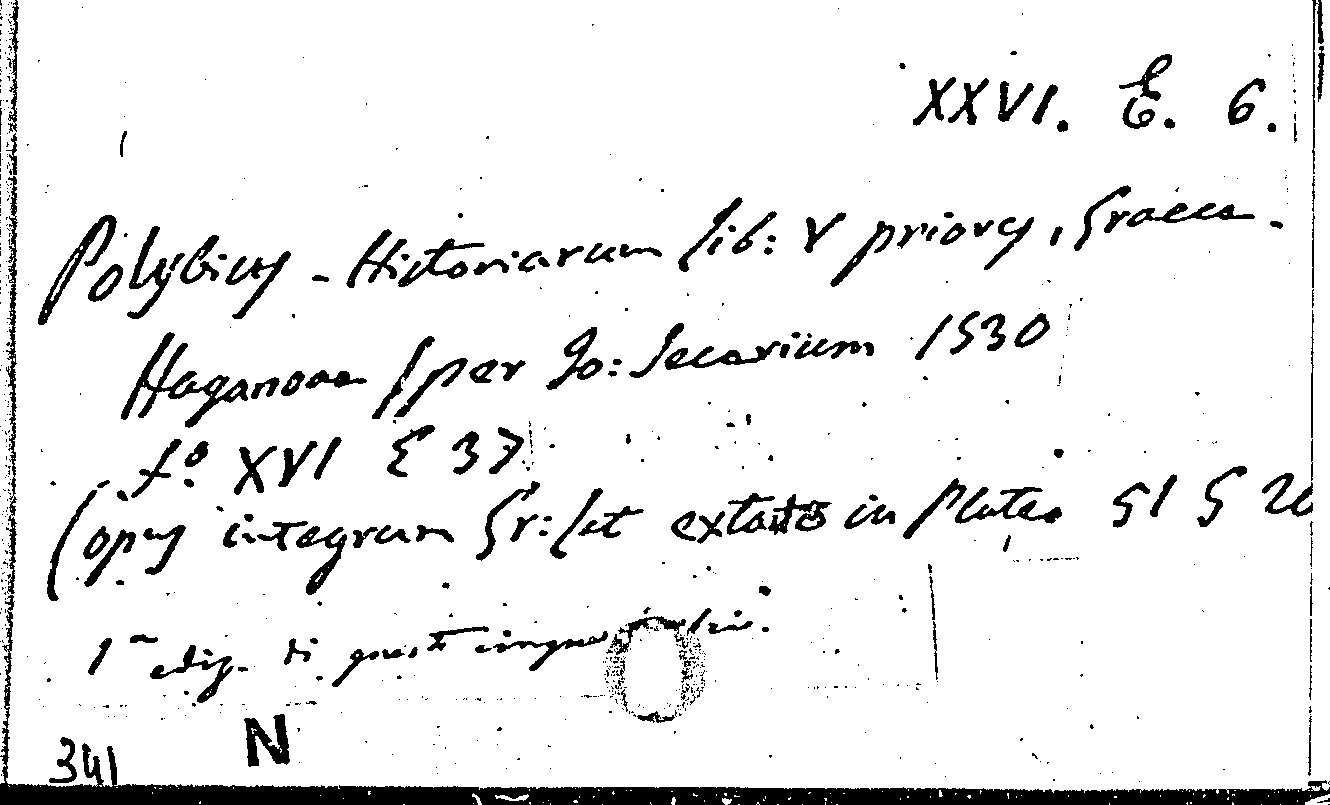 XXVI. E. 6.
Polybius - Historiarum lib: V priores, Graeca.
Haganoae / per Jo: Secerium 1530
f.º XVI E 37
(opus integrum Gr: Lat extat in Pluteo 51 G 20
1ª ediz. di questi cinque libri.
341 N